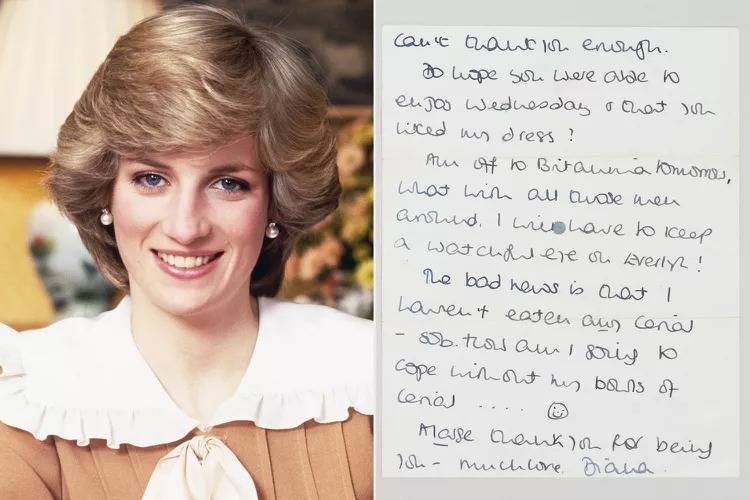 can't thank you enough.
Do hope you were able to
enjoy Wednesday & that you
liked my dress?
Am off to Britannia tomorrow,
what with all those men
around, I will have to keep
a watchful eye on Evelyn!
The bad news is that I
haven't eaten any cereal
- sob. How am I going to
cope without my bowls of
cereal ....
Masse thank you for being
you - much love Diana.